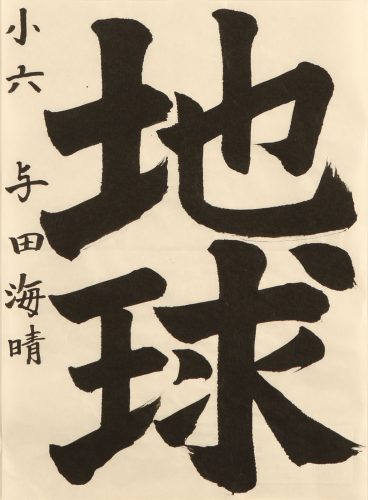 地球
小六 与田海晴